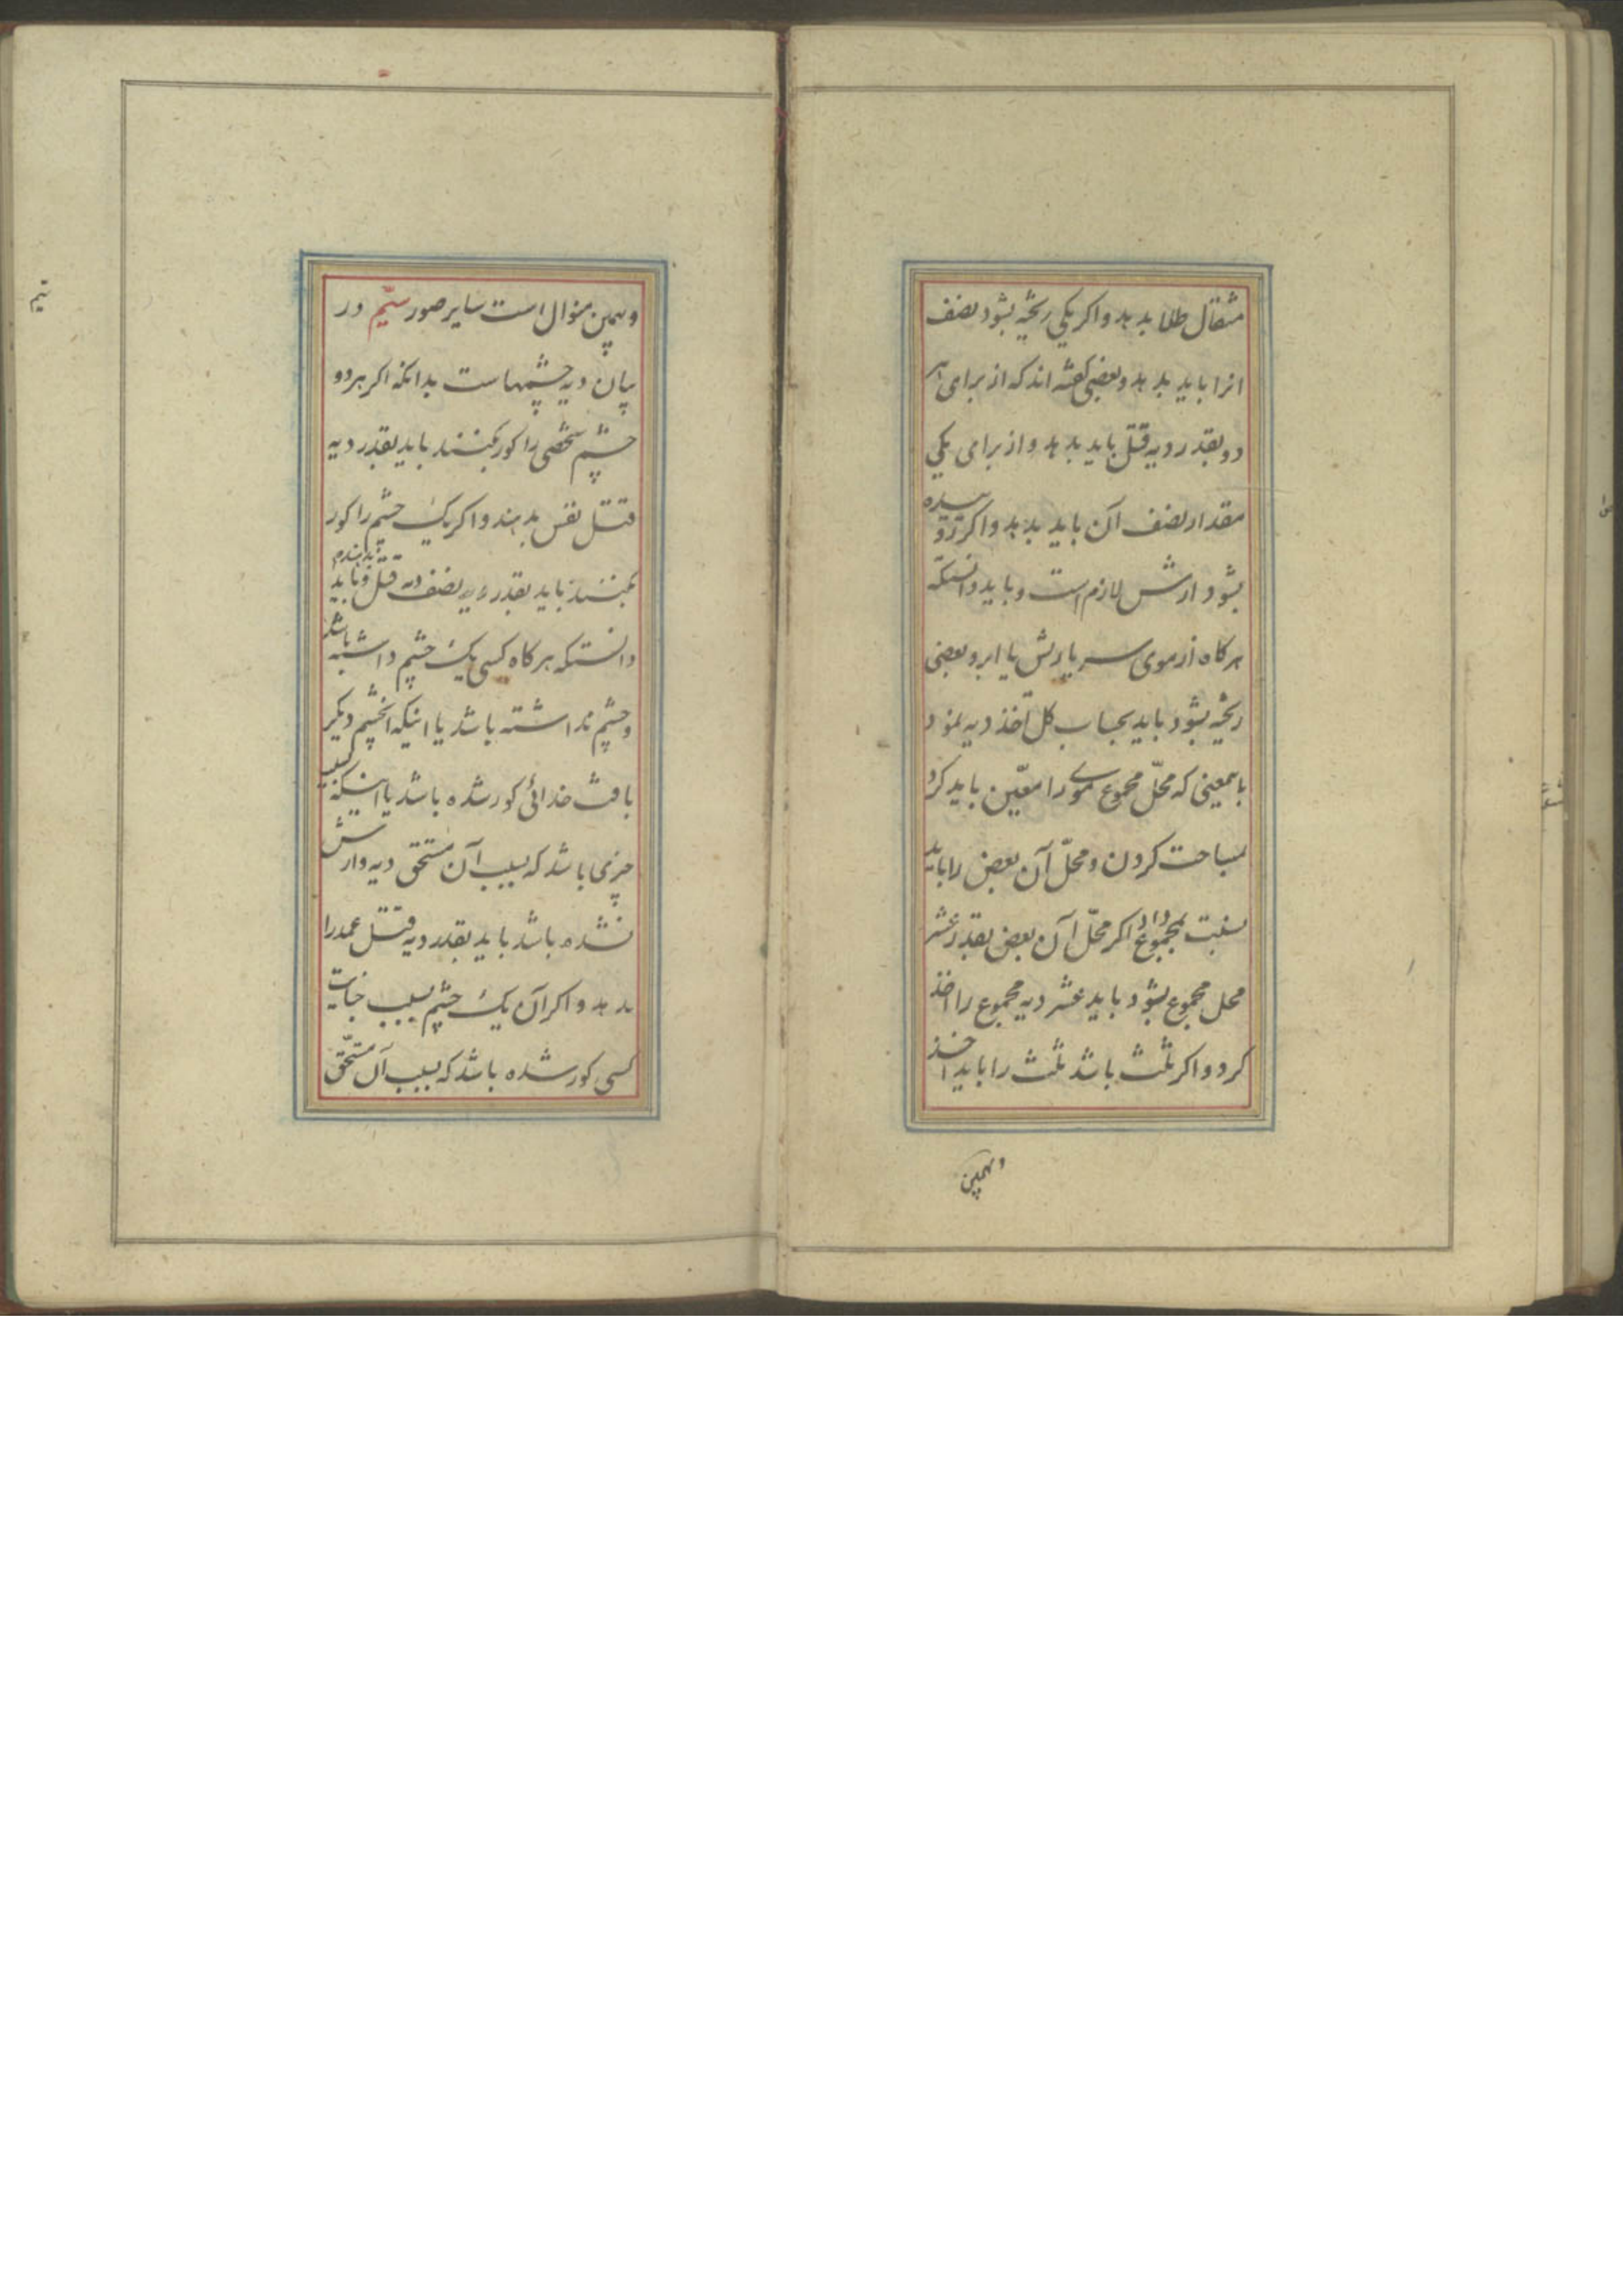 مثقال طلا بدهد و اکر یکی ریخته بشود نصف
انرا باید بدهد و بعضی کفته اند که از برای هر
دو بقدر دیه قتل باید بدهد و از برای یکی
مقدار نصف آن باید بدهد و اکر روییده
بشود ارش لازم است و باید دانستکه
هر کاه از موی سر یا ریش یا ابرو بعضی
ریخته بشود باید بحساب کل اخذ دیه نمود
باینمعنی که محلّ مجموع موی را معیّن باید کرد
مساحت کردن و محلّ آن بعض را باید
نسبت بمجموع داد اکر محلّ آن بعض بقدر عشر
محل مجموع بشود باید عشر دیه مجموع را اخذ
کرد و اکر ثلث باشد ثلث را باید اخذ
وبهمین
وبهمین منوال است سایر صور سیّم در
بیان دیه چشمهاست بدانکه اکر هر دو
چشم شخصی را کور بکنند باید بقدر دیه
قتل نفس بدهند و اکر یک چشم را کور
بکنند باید بقدر نصف دیه قتل بدهند و باید
دانستکه هر کاه کسی یک چشم داشته باشد
و چشم نداشته باشد یا اینکه انچشم دیکر
بافت خدائی کور شده باشد یا اینکه بسبب
چیزی باشد که بسبب آن مستحق دیه و ارش
نشده باشد باید بقدر دیه قتل عمد را
بدهد و اکر آن یک چشم بسبب جنایت
کسی کور شده باشد که بسبب آن مستحّق
سیم